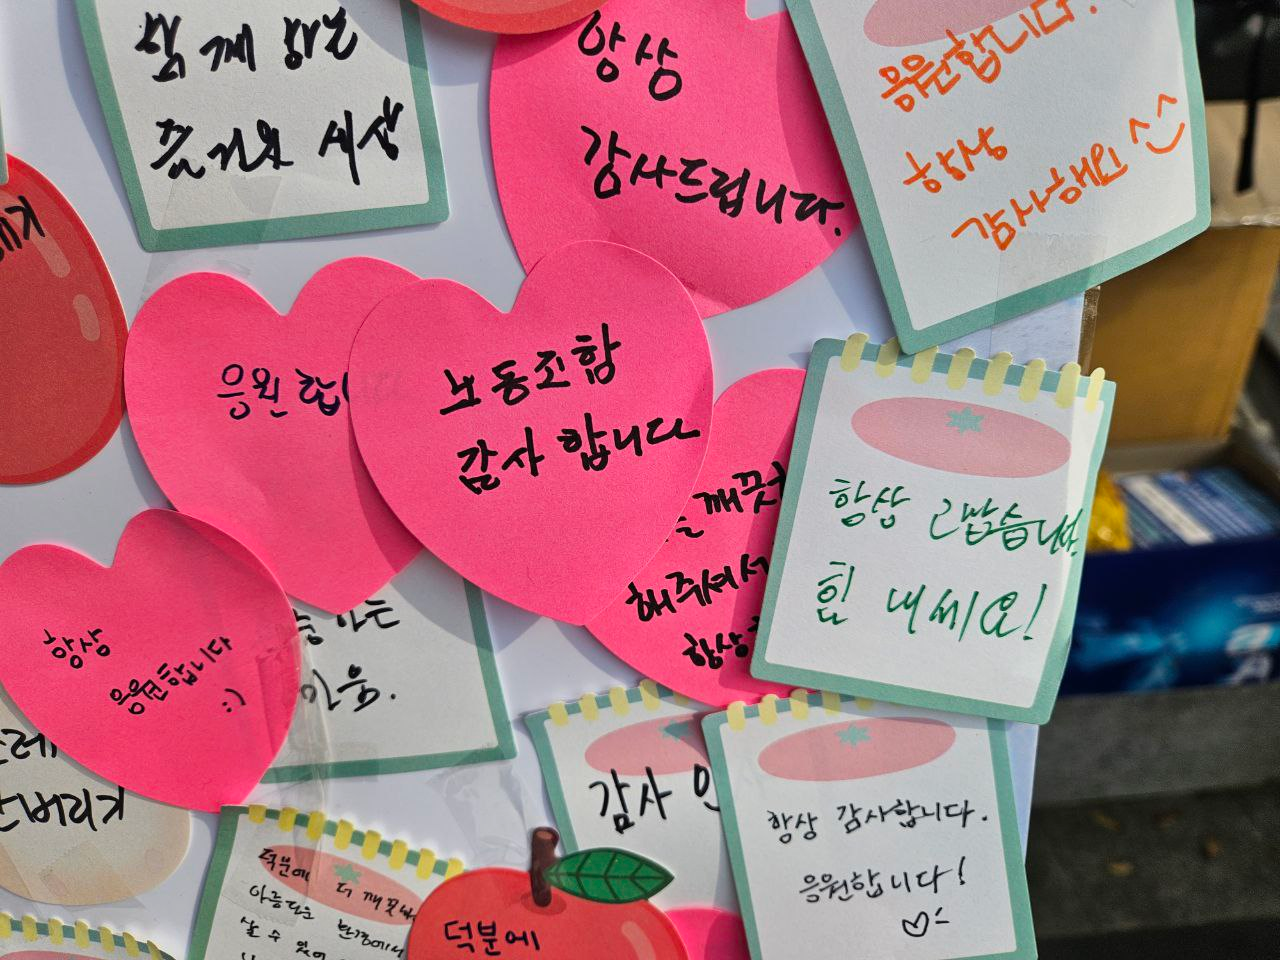 함께 하는
즐거운 세상
항상
감사드립니다.
응원합니다.
항상
감사해요 ^^
응원 합니
노동조합
감사 합니다
깨끗
해주셔서
항상
항상 고맙습니다.
힘 내세요!
항상
응원합니다
:)
감사
항상 감사합니다.
응원합니다!
덕분에 더 깨끗
아름다운 환경에서
살 수 있어
덕분에